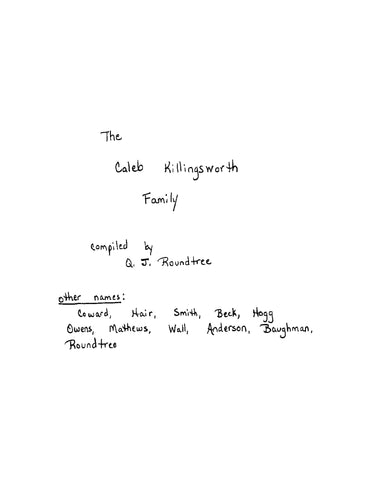 The
Caleb Killingsworth
Family
compiled by
Q. J. Roundtree
other names:
Coward, Hair, Smith, Beck, Hogg
Owens, Mathews, Wall, Anderson, Baughman,
Roundtree